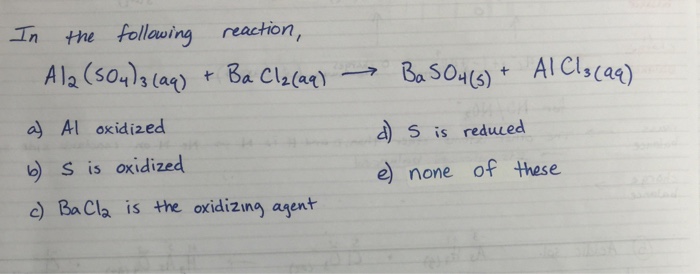 In the following reaction,
Al2(SO4)3(aq) + BaCl2(aq) → BaSO4(s) + AlCl3(aq)
a) Al oxidized
b) S is oxidized
c) BaCl2 is the oxidizing agent
d) S is reduced
e) none of these